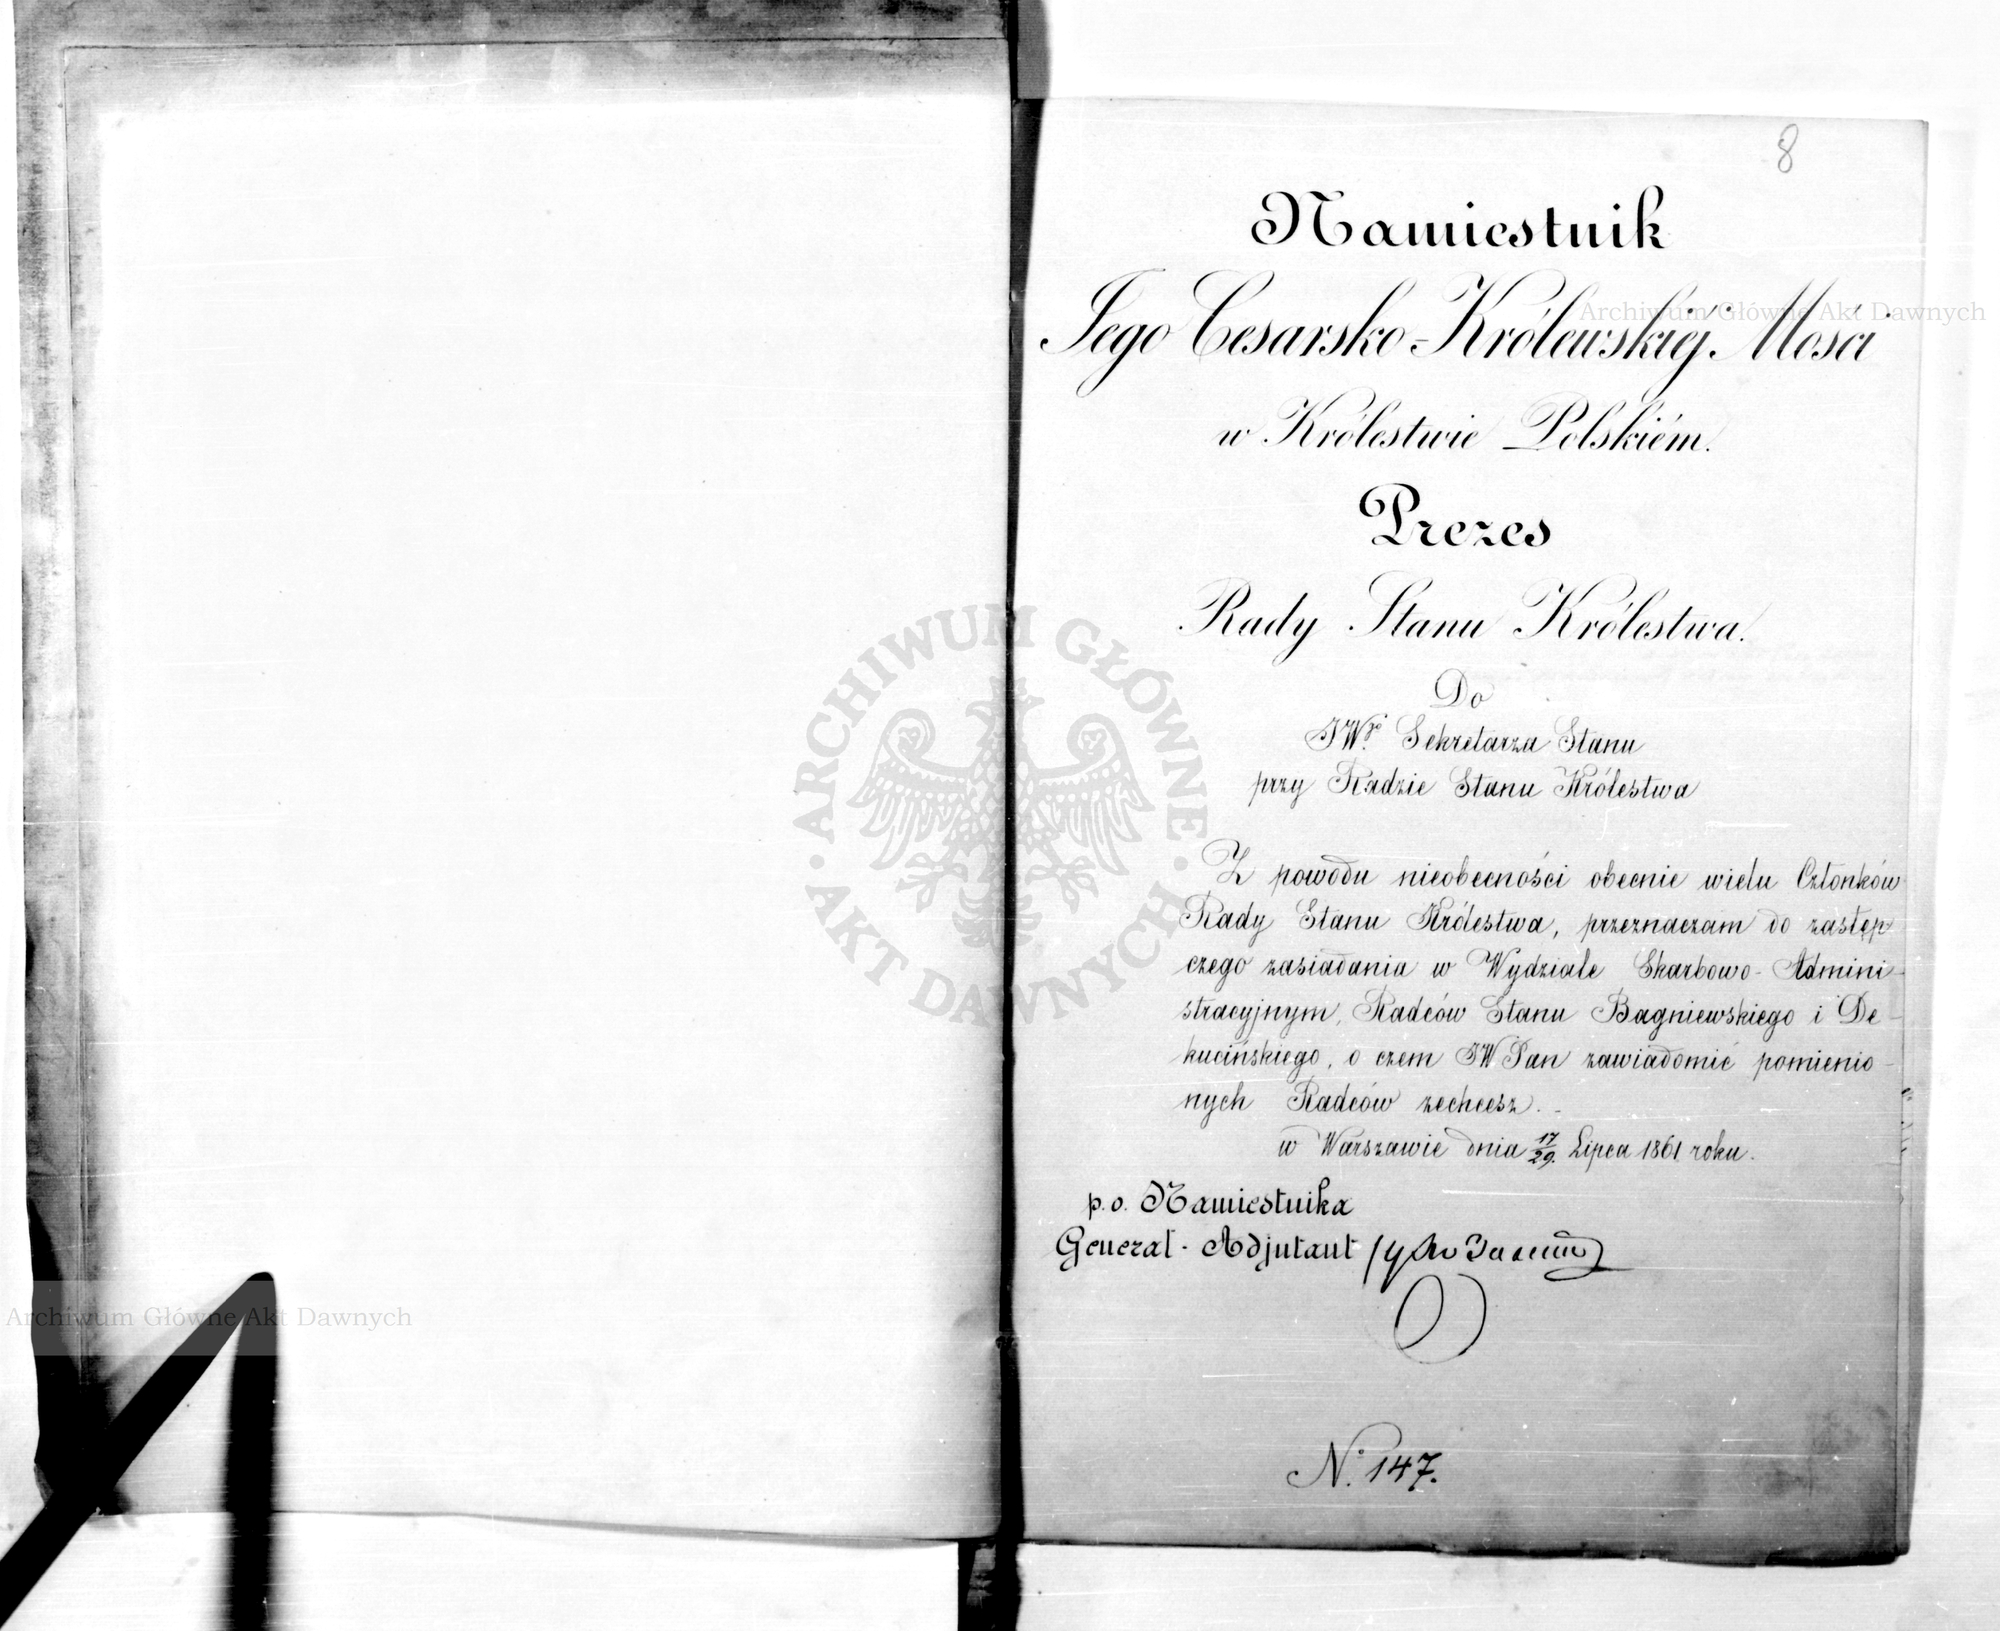 8
Namiestnik
Jego Cesarsko-Królewskiéj Mości
w Królestwie Polskiém.
Prezes
Rady Stanu Królestwa.
Do
JWgo Sekretarza Stanu
przy Radzie Stanu Królestwa
Z powodu nieobecności obecnie wielu Członków
Rady Stanu Królestwa, przeznaczam do zastęp
czego zasiadania w Wydziale Skarbowo-Admini-
stracyjnym, Radców Stanu Bagniewskiego i De-
kucińskiego, o czem JW Pan zawiadomić pomienio-
nych Radców zechcesz. -
w Warszawie dnia 17/29. Lipca 1861 roku.
p.o. Namiestnika
Generał-Adjutant
N. 147.
Archiwum Główne Akt Dawnych
· ARCHIWUM GŁÓWNE · AKT DAWNYCH
Archiwum Główne Akt Dawnych